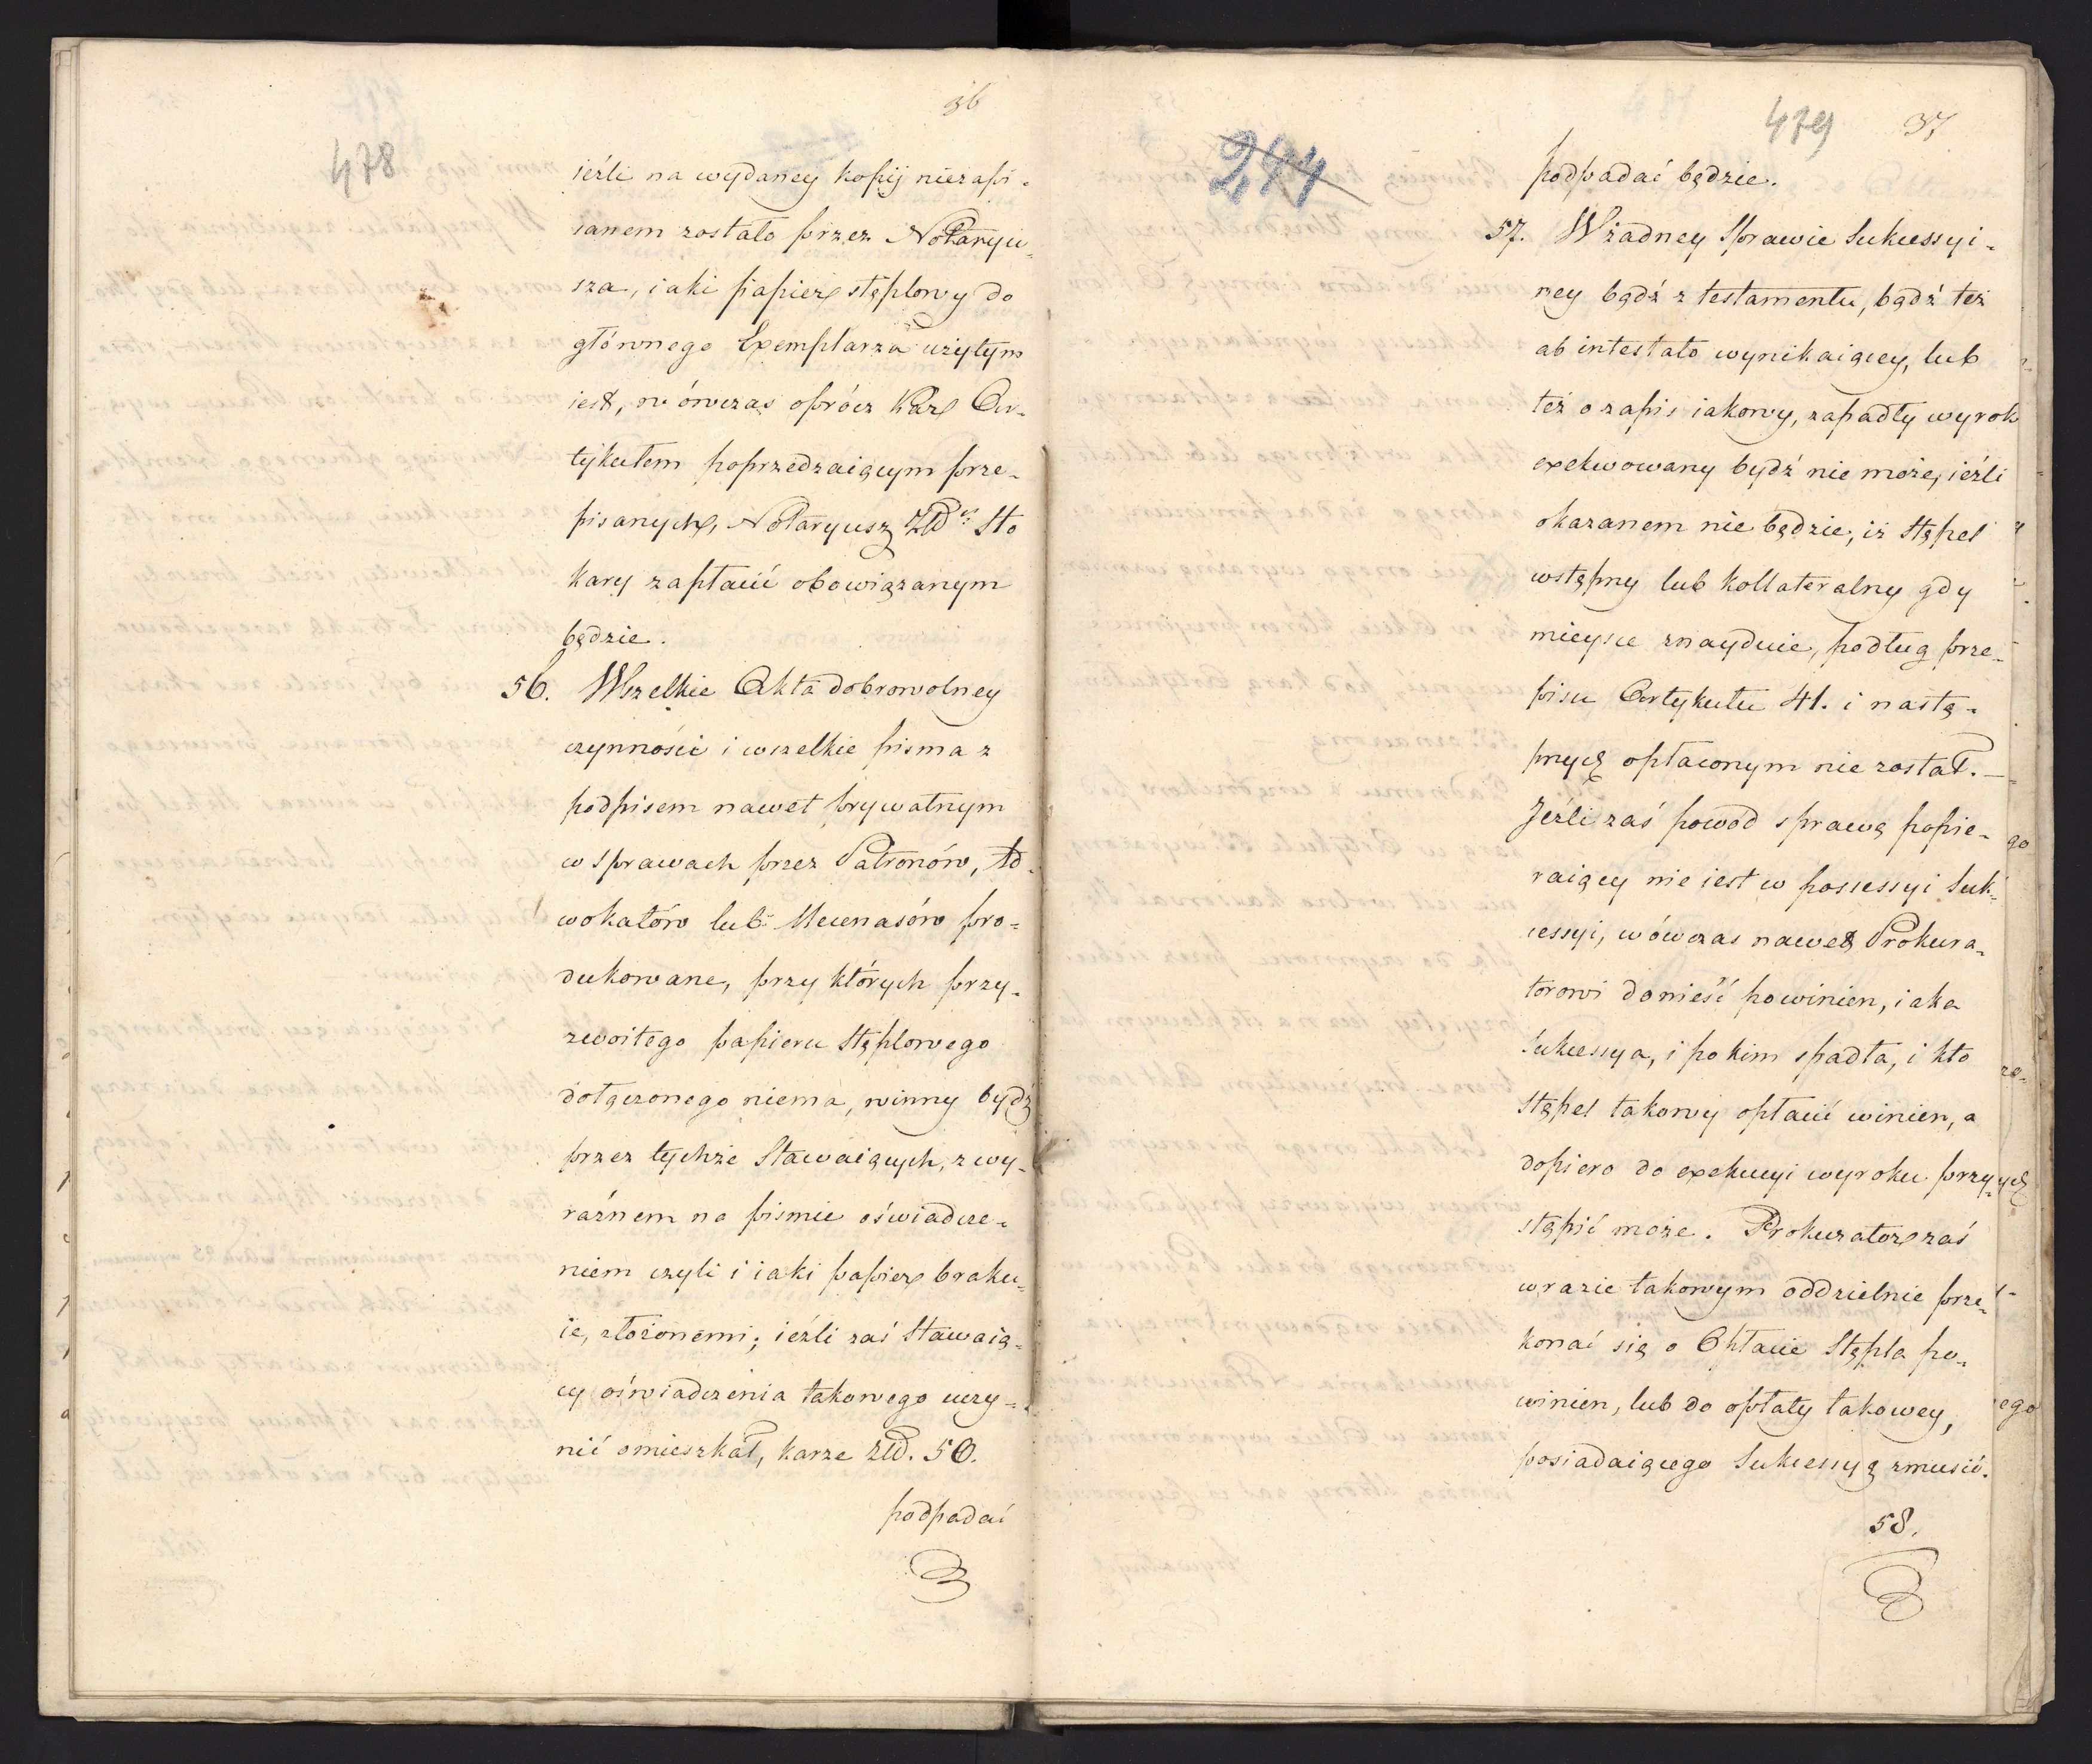 36
478
ieźli na wydaney kopij niezapi-
sanem zostało przez Notaryu-
sza, iaki papier stęplowy do
głównego Exemplarza użytym
iest, w ówczas oprócz Kar Ar-
tykułem poprzedzaiącym prze-
pisanych, Notaryusz Złp. Sto
kary zapłacić obowiązanym
będzie.
56. Wszelkie Akta dobrowolney
czynności i wszelkie pisma z
podpisem nawet prywatnym
w sprawach przez Patronów, Ad-
wokatów lub Mecenasów pro=
dukowane, przy których przy-
zwoitego papieru Stęplowego
dołączonego niema, winny bydź
przez tychże Stawaiących, z wy-
raźnem na piśmie oświadcze-
niem czyli i iaki papier braku-
ie, złożonemi; ieźli zaś Stawaią-
cy oświadczenia takowego uczy-
nić omieszkał, karze Złp. 50.
podpadać
479 37
244
podpadać będzie.
57. W żadney Sprawie Sukcessyi-
ney bądź z testamentu, bądź też
ab intestato wynikaiącey, lub
też o zapis iakowy, zapadły wyrok
exekwowany bydź nie może, ieźli
okazanem nie będzie, iż Stępel
wstępny lub kollateralny gdy
mieysce znayduie, podług prze-
pisu Artykułu 41. i nastę-
pnych opłaconym nie został.—
Jeźli zaś powód sprawę popie-
raiący nie iest w possessyi Suk-
cessyi, wówczas nawet Prokura-
torowi donieść powinien, iaka
Sukcessya, i po kim spadła, i kto
Stępel takowy opłacić winien, a
dopiero do exekucyi wyroku przy-
stąpić może. Prokurator zaś
w razie takowym oddzielnie prze-
konać się o Opłacie Stępla po-
winien, lub do opłaty takowey,
posiadaiącego Sukcessyą zmusić.
58.